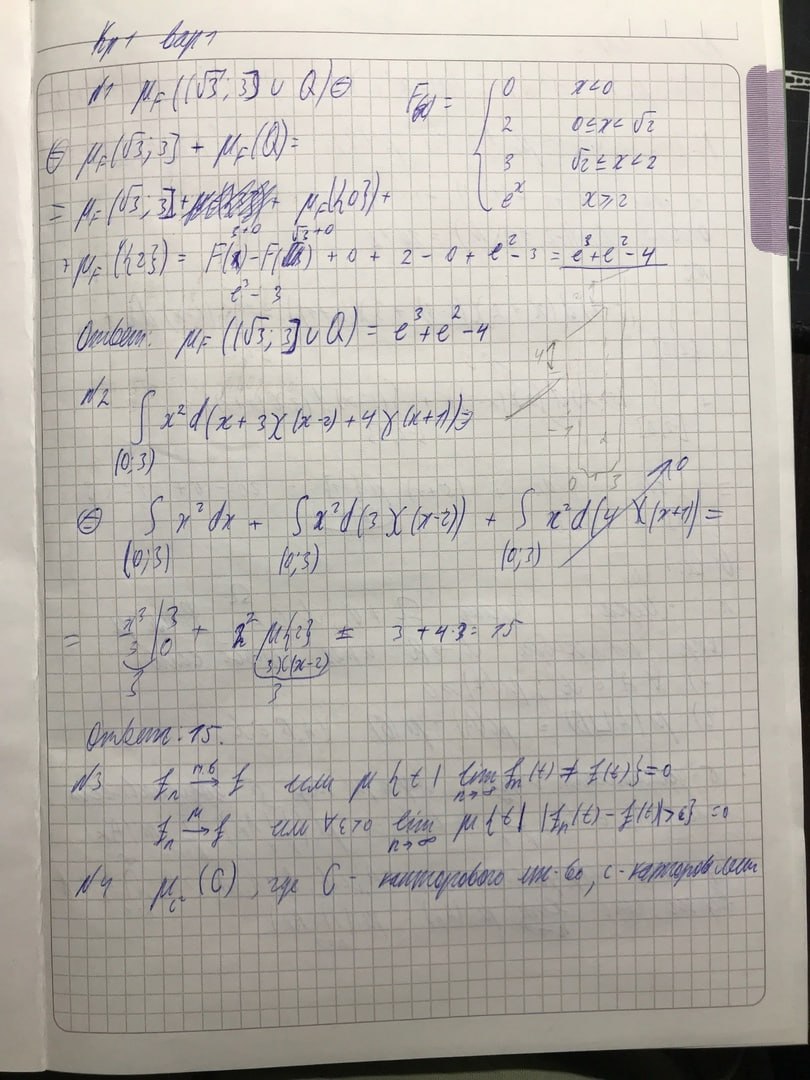 Кр 1 вар 1
N1 μ_F((√3; 3] ∪ Q) ⊜
F(x) = { 0 x<0
2 0≤x<√2
3 √2≤x<2
e^x x≥2
⊜ μ_F(√3; 3] + μ_F(Q) =
= μ_F(√3; 3] + μ_F({0}) +
+ μ_F({2}) = F(3+0) - F(√3+0) + 0 + 2 - 0 + e² - 3 = e³ + e² - 4
e³ - 3
Ответ: μ_F((√3; 3] ∪ Q) = e³ + e² - 4
N2 ∫_(0;3) x² d(x + 3χ(x-2) + 4χ(x+1)) ⊜
⊜ ∫_(0;3) x² dx + ∫_(0;3) x² d(3χ(x-2)) + ∫_(0;3) x² d(4χ(x+1)) = → 0
= x³/3 |₀³ + 2² μ{2} = 3 + 4·3 = 15
3χ(x-2)
3
Ответ: 15.
N3 f_n →(п.в) f если μ{t | lim_(n→∞) f_n(t) ≠ f(t)} = 0
f_n →(μ) f если ∀ε>0 lim_(n→∞) μ{t | |f_n(t) - f(t)|>ε} = 0
N4 μ_c²(C), где C - канторового мн-во, c -